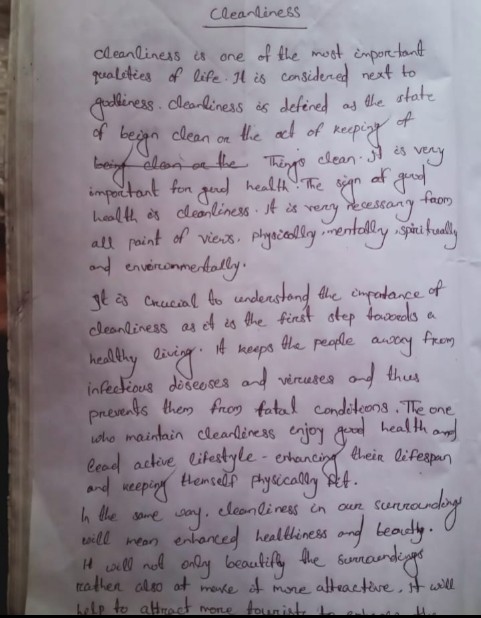 Cleanliness
Cleanliness is one of the most important
qualities of life. It is considered next to
godliness. Cleanliness is defined as the state
of beign clean or the act of keeping of
being clean or the Things clean. It is very
important for good health. The sign of good
health is cleanliness. It is very necessary from
all point of views. physically, mentally, spiritually
and environmentally.
It is crucial to understand the importance of
cleanliness as it is the first step towards a
healthy living. It keeps the people away from
infectious diseases and viruses and thus
prevents them from fatal conditions. The one
who maintain cleanliness enjoy good health and
lead active lifestyle - enhancing their lifespan
and keeping themself physically fit.
In the same way. cleanliness in our surroundings
will mean enhanced healthiness and beauty.
It will not only beautifly the surroundings
rather also at make it more attractive. It will
help to attract more tourists to the